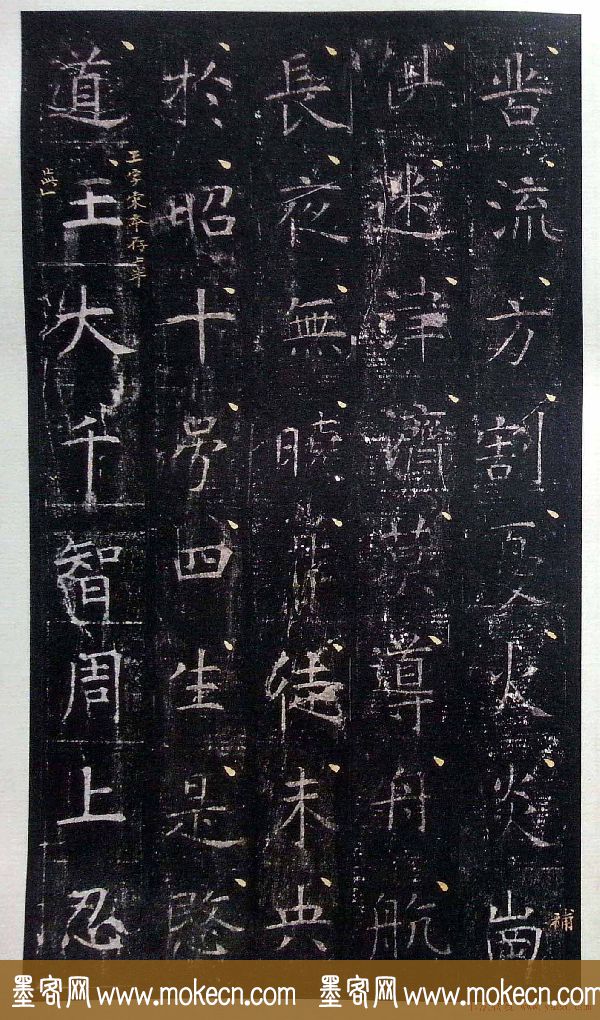 流方割火炎崗
補
迷津濟導舟航
長夜無曉徒未央
於昭十号四生是愍
王字宋本存上半
道王大千智周上忍
墨客网 www.mokecn.com 墨客网 www.mokecn.com